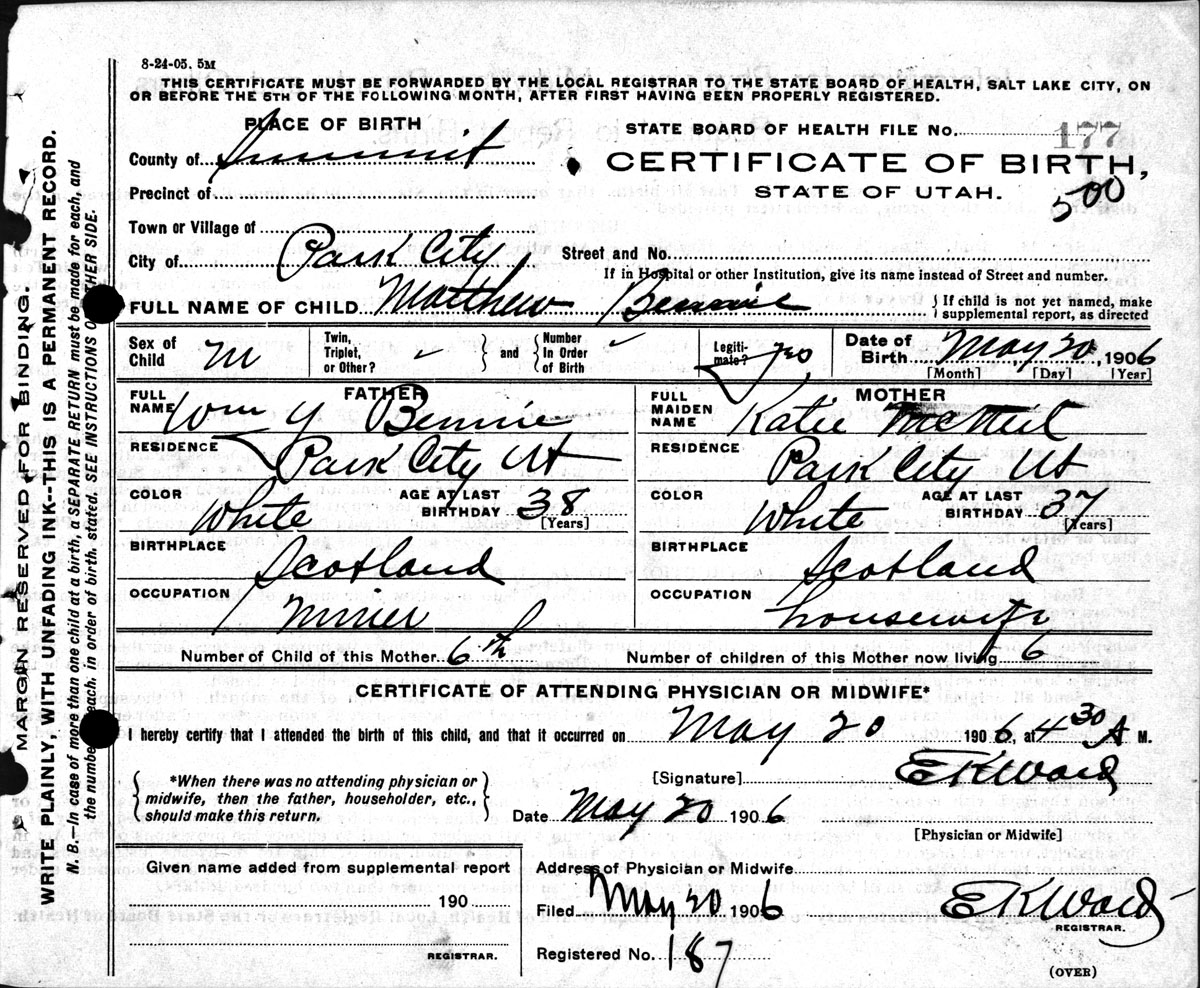 8-24-05. 5M
THIS CERTIFICATE MUST BE FORWARDED BY THE LOCAL REGISTRAR TO THE STATE BOARD OF HEALTH, SALT LAKE CITY, ON
OR BEFORE THE 5TH OF THE FOLLOWING MONTH, AFTER FIRST HAVING BEEN PROPERLY REGISTERED.
PLACE OF BIRTH
County of Summit
Precinct of
Town or Village of
City of Park City
STATE BOARD OF HEALTH FILE No. 177
CERTIFICATE OF BIRTH,
STATE OF UTAH.
500
Street and No.
If in Hospital or other Institution, give its name instead of Street and number.
FULL NAME OF CHILD Matthew Bennie { If child is not yet named, make
supplemental report, as directed
Sex of
Child M
Twin,
Triplet,
or Other? ✓
and
Number
In Order
of Birth ✓
Legiti-
mate? yes
Date of
Birth May 20, 1906
[Month] [Day] [Year]
FATHER
FULL
NAME Wm Y Bennie
RESIDENCE Park City Ut
COLOR White AGE AT LAST
BIRTHDAY 38
[Years]
BIRTHPLACE Scotland
OCCUPATION Miner
MOTHER
FULL
MAIDEN
NAME Katie McNeil
RESIDENCE Park City Ut
COLOR White AGE AT LAST
BIRTHDAY 37
[Years]
BIRTHPLACE Scotland
OCCUPATION Housewife
Number of Child of this Mother 6th Number of children of this Mother now living 6
CERTIFICATE OF ATTENDING PHYSICIAN OR MIDWIFE*
I hereby certify that I attended the birth of this child, and that it occurred on May 20 1906, at 4 30 A M.
*When there was no attending physician or
midwife, then the father, householder, etc.,
should make this return.
[Signature] E K Ward
Date May 20 1906
[Physician or Midwife]
Given name added from supplemental report
190
REGISTRAR.
Address of Physician or Midwife
Filed May 20 1906 E K Ward
REGISTRAR.
Registered No. 187
(OVER)
MARGIN RESERVED FOR BINDING
WRITE PLAINLY, WITH UNFADING INK--THIS IS A PERMANENT RECORD.
N. B.--In case of more than one child at a birth, a SEPARATE RETURN must be made for each, and
the number each, in order of birth, stated. SEE INSTRUCTIONS OTHER SIDE.